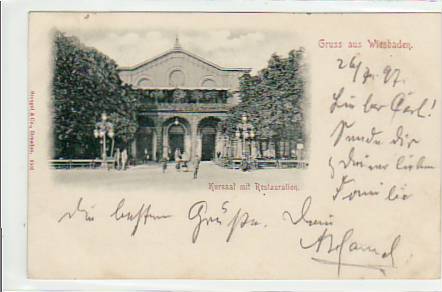 Gruss aus Wiesbaden.
26/7. 97.
Lieber Carl!
Sende dir
& deiner lieben
Familie
Kursaal mit Restauration.
die besten Grüße. Dein
Stengel & Co., Dresden.